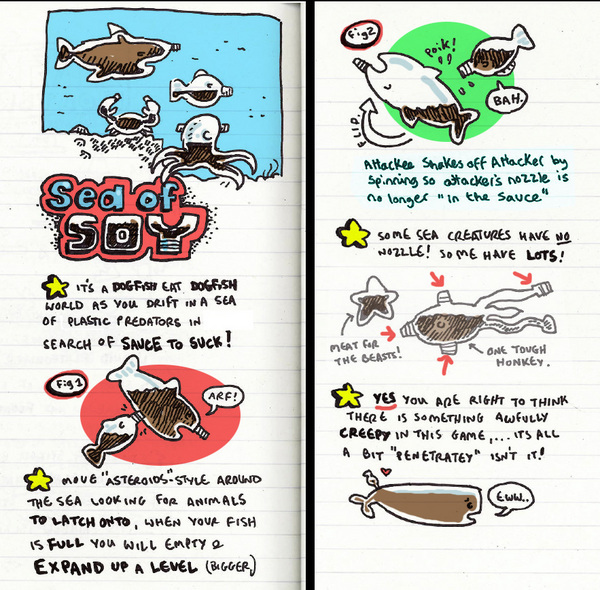 Sea of
SOY
IT'S A DOGFISH EAT DOGFISH
WORLD AS YOU DRIFT IN A SEA
OF PLASTIC PREDATORS IN
SEARCH OF SAUCE TO SUCK!
Fig 1
ARF!
MOVE "ASTEROIDS"-STYLE AROUND
THE SEA LOOKING FOR ANIMALS
TO LATCH ONTO, WHEN YOUR FISH
IS FULL YOU WILL EMPTY &
EXPAND UP A LEVEL (BIGGER)
Fig 2
POIK!
BAH.
FLIP.
Attackee Shakes off Attacker by
Spinning so attacker's nozzle is
no longer "in the sauce"
SOME SEA CREATURES HAVE NO
NOZZLE! SOME HAVE LOTS!
MEAT FOR
THE BEASTS!
ONE TOUGH
HONKEY.
YES YOU ARE RIGHT TO THINK
THERE IS SOMETHING AWFULLY
CREEPY IN THIS GAME,... ITS ALL
A BIT "PENETRATEY" ISN'T IT!
EWW..